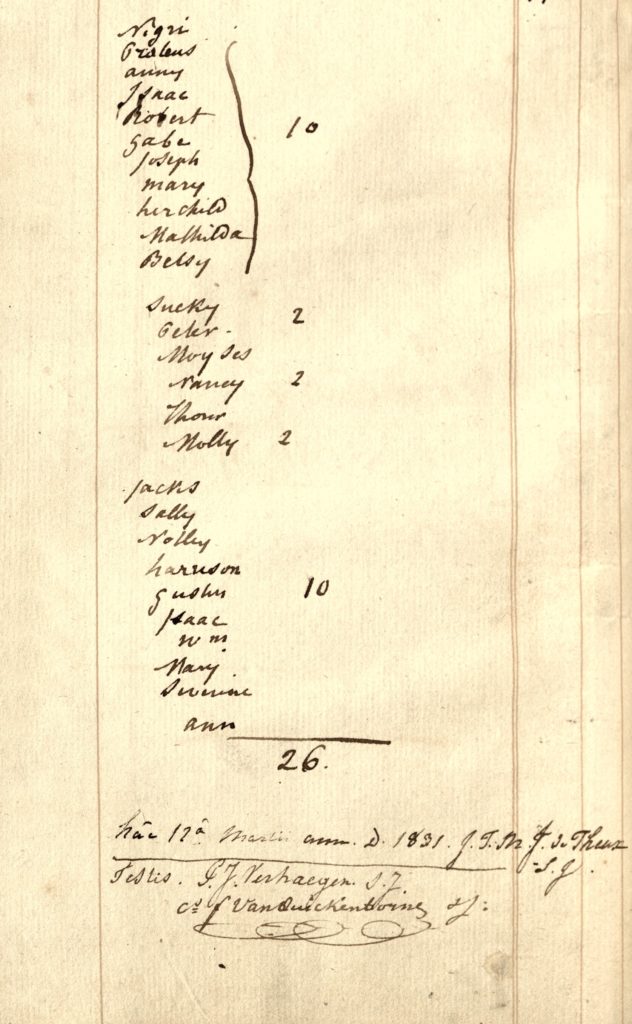 Nigri
Proteus
anny
Isaac
Robert 10
gabe
Joseph
mary
her child
Mathilda
Betsy
Sucky 2
Peter -
Moyses
Nancy 2
Thom
Molly 2
Jacks
Sally
Notley
harrison
gustus 10
Isaac
Wm
Mary
Severine
ann
26.
hâc 12â Martii ann. D. 1831. J. T. M. J. de Theux
S.J.
Testis. P. J. Verhaegen S.J.
J VanQuickenborne SJ: